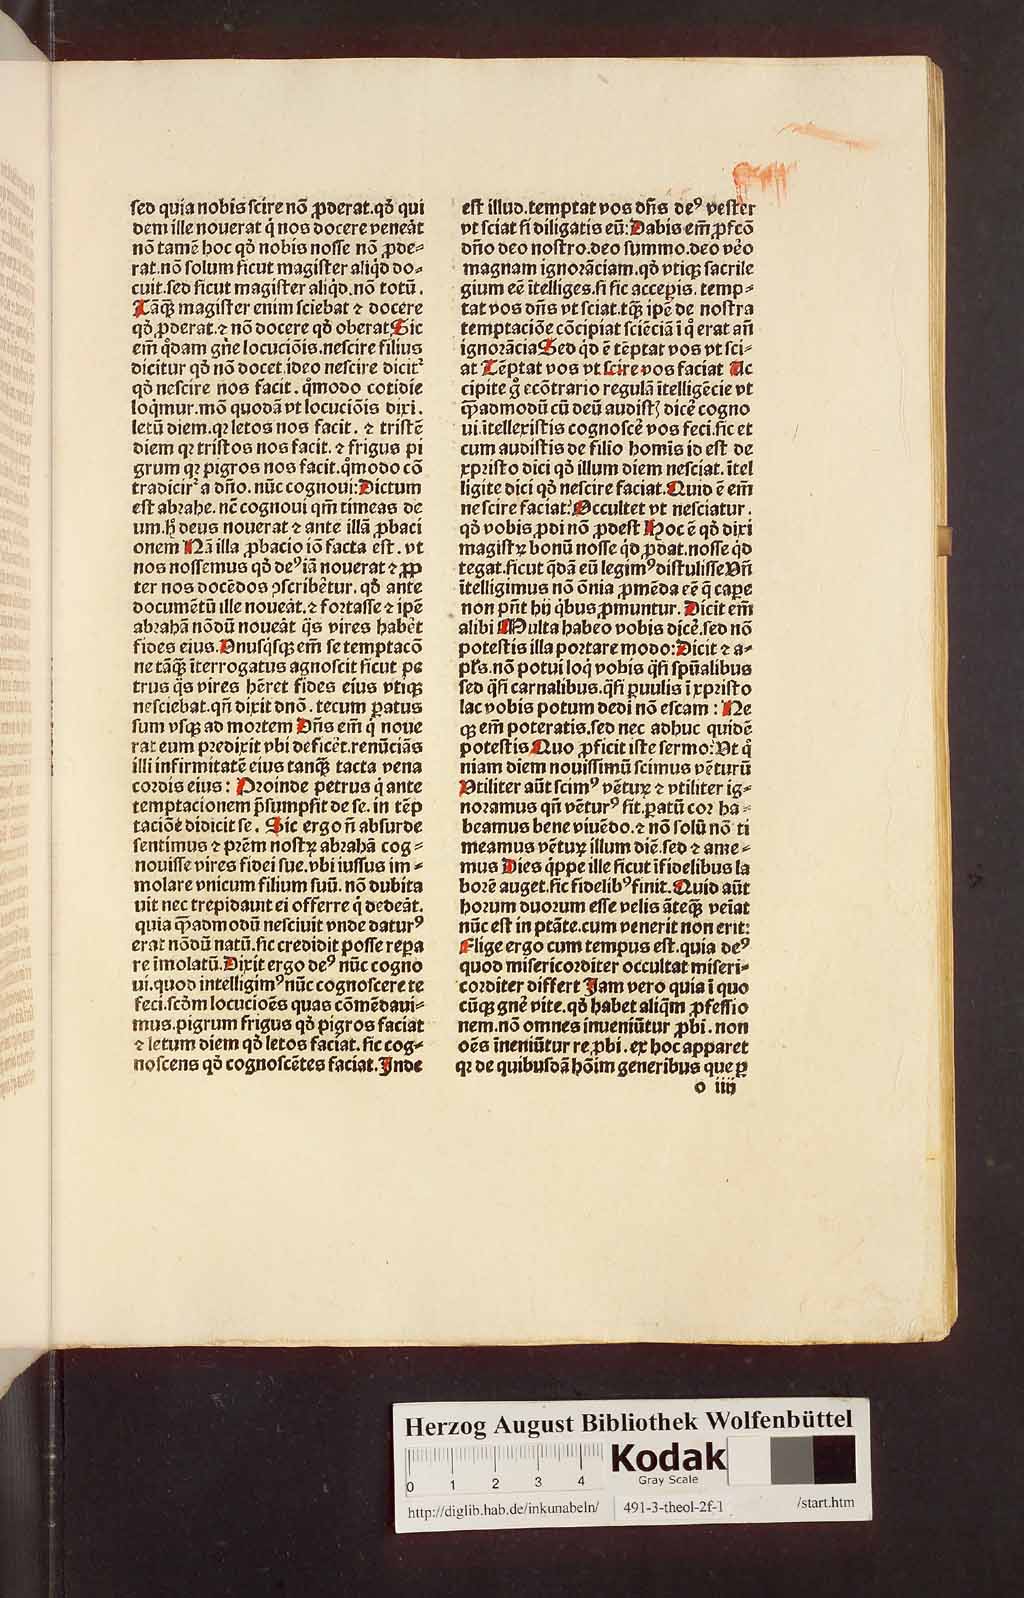 sed quia nobis scire nō ꝓderat.qḋ qui
dem ille nouerat q̇ nos docere veneāt
nō tamē hoc qḋ nobis nosse nō ꝓde-
rat.nō solum sicut magister aliqḋ do-
cuit.sed sicut magister aliqḋ.nō totū.
Tāqꝫ magister enim sciebat ⁊ docere
qḋ ꝓderat.⁊ nō docere qḋ oberat Sic
em̄ q̊dam gn̄e locuciōis.nescire filius
dicitur qḋ nō docet.ideo nescire dicit᷑
qḋ nescire nos facit. q̊modo cotidie
loq̇mur.mō quodā vt locuciōis dixi.
letū diem.qꝛ letos nos facit. ⁊ tristē
diem qꝛ tristos nos facit.⁊ frigus pi
grum qꝛ pigros nos facit.q̊modo cō
tradicit᷑ a dn̄o. nūc cognoui: Dictum
est abrahe. nc̄ cognoui qm̄ timeas de
um.hꝫ deus nouerat ⁊ ante illā ꝓbaci
onem Nā illa ꝓbacio iō facta est. vt
nos nossemus qḋ deꝰ iā nouerat ⁊ ꝓp
ter nos docēdos ꝯscribētur. qḋ ante
documētū ille noueāt.⁊ fortasse ⁊ ipē
abrahā nōdū noueāt q̇s vires habēt
fides eius. Vnusq̇sqꝫ em̄ se temptacō
ne tāqꝫ īterrogatus agnoscit sicut pe
trus q̇s vires hēret fides eius vtiqꝫ
nesciebat.qn̄ dixit dnō. tecum ꝑatus
sum vsqꝫ ad mortem Dn̄s em̄ q̇ noue
rat eum predixit vbi deficēt.renūciās
illi infirmitatē eius tanqꝫ tacta vena
cordis eius: Proinde petrus q̇ ante
temptacionem p̄sumpsit de se. in tēp
taciōe didicit se. Sic ergo n̄ absurde
sentimus ⁊ prēm nostꝝ abrahā cog-
nouisse vires fidei sue.vbi iussus im-
molare vnicum filium suū. nō dubita
uit nec trepidauit ei offerre q̇ dedeāt.
quia qꝫadmodū nesciuit vnde daturꝰ
erat nōdū natū.sic credidit posse repa
re īmolatū. Dixit ergo deꝰ nūc cogno
ui.quod intelligimꝰ nūc cognoscere te
feci.scḋm locucioēs quas cōmēdaui-
mus.pigrum frigus qḋ pigros faciat
⁊ letum diem qḋ letos faciat. sic cog-
noscens qḋ cognoscētes faciat. Inde
est illud.temptat vos dn̄s deꝰ vester
vt sciat si diligatis eū: Dabis em̄ ꝓfcō
dn̄o deo nostro.deo summo.deo vēo
magnam ignorāciam.qḋ vtiqꝫ sacrile
gium eē ītelliges.si sic accepis. temp-
tat vos dn̄s vt sciat.tqꝫ ipē de nostra
temptaciōe cōcipiat sciēciā ī q̊ erat an̄
ignorācia Sed qḋ ē tēptat vos vt sci-
at Tēptat vos vt scire vos faciat Ac
cipite g̊ ecōtrario regulā ītelligēcie vt
qꝫadmodū cū deū audistꝭ dicē cogno
ui.ītellexistis cognoscē vos feci.sic et
cum audistis de filio homīs id est de
xpristo dici qḋ illum diem nesciat. ītel
ligite dici qḋ nescire faciat. Quid ē em̄
nescire faciat: Occultet vt nesciatur.
qḋ vobis ꝓdi nō ꝓdest Hoc ē qḋ dixi
magistꝝ bonū nosse qḋ ꝓdat.nosse qḋ
tegat.sicut qḋā eū legimꝰ distulisse Vn̄
ītelligimus nō ōnia ꝓmēda eē q̄ cape
non pn̄t hij q̇bus ꝓmuntur. Dicit em̄
alibi Multa habeo vobis dicē.sed nō
potestis illa portare modo: Dicit ⁊ a-
pl̄s.nō potui loq̇ vobis q̄si spūalibus
sed q̄si carnalibus.q̄si ꝑuulis ī xpristo
lac vobis potum dedi nō escam : Ne
qꝫ em̄ poteratis.sed nec adhuc quidē
potestis Quo ꝓficit iste sermo: Vt q̊
niam diem nouissimū scimus vēturū
Vtiliter aūt scimꝰ vēturꝝ ⁊ vtiliter ig-
noramus qn̄ vēturꝰ sit.ꝑatū cor ha-
beamus bene viuēdo.⁊ nō solū nō ti
meamus vētuꝝ illum diē.sed ⁊ ame-
mus Dies q̇ppe ille sicut īfidelibus la
borē auget.sic fidelibꝰ finit. Quid aūt
horum duorum esse velis āteqꝫ veīat
nūc est in ptāte.cum venerit non erit:
Elige ergo cum tempus est.quia deꝰ
quod misericorditer occultat miseri-
corditer differt Iam vero quia ī quo
cūqꝫ gnē vite.qḋ habet aliqm̄ ꝓfessio
nem.nō omnes inueniūtur ꝓbi. non
oēs īneniūtur reꝓbi. ex hoc apparet
qꝛ de quibusdā hōim generibus que ꝑ
o iiij
Herzog August Bibliothek Wolfenbüttel
0 1 2 3 4
Kodak
Gray Scale
http://diglib.hab.de/inkunabeln/ 491-3-theol-2f-1 /start.htm